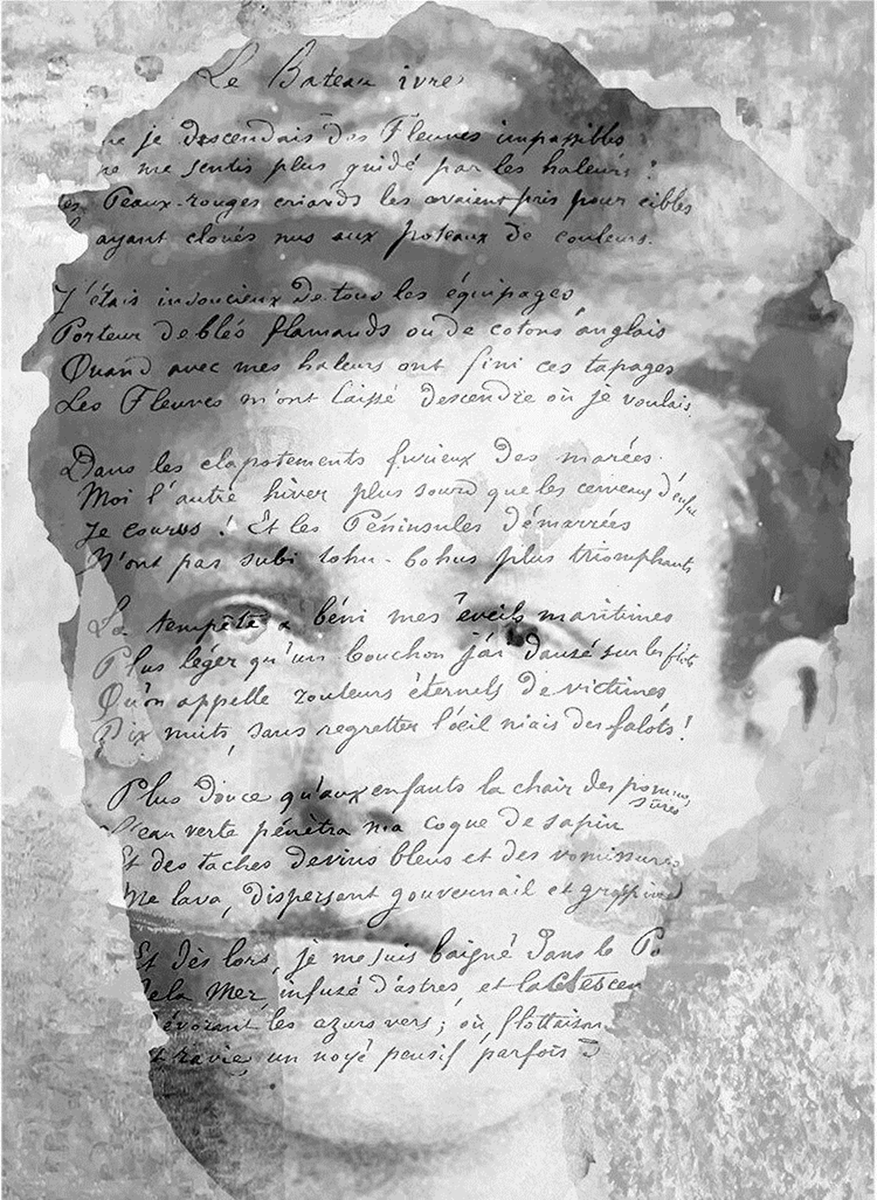 Le Bateau ivre
je descendais des Fleuves impassibles
ne me sentis plus guidé par les haleurs :
Les Peaux-rouges criards les avaient pris pour cibles
ayant cloués nus aux poteaux de couleurs.
J'étais insoucieux de tous les équipages
Porteur de blés flamands ou de cotons anglais
Quand avec mes haleurs ont fini ces tapages
Les Fleuves m'ont laissé descendre où je voulais.
Dans les clapotements furieux des marées
Moi l'autre hiver plus sourd que les cerveaux d'enfants
Je courus ! Et les Péninsules démarrées
N'ont pas subi tohu-bohus plus triomphants
La tempête a béni mes éveils maritimes
Plus léger qu'un bouchon j'ai dansé sur les flots
Qu'on appelle rouleurs éternels de victimes
Dix nuits, sans regretter l'oeil niais des falots !
Plus douce qu'aux enfants la chair des pommes sûres
L'eau verte pénétra ma coque de sapin
Et des taches de vins bleus et des vomissures
Me lava, dispersant gouvernail et grappin
Et dès lors, je me suis baigné dans le Po
De la Mer, infusé d'astres, et lactescen
évorant les azurs vers ; où, flottaison
t ravie, un noyé pensif parfois d